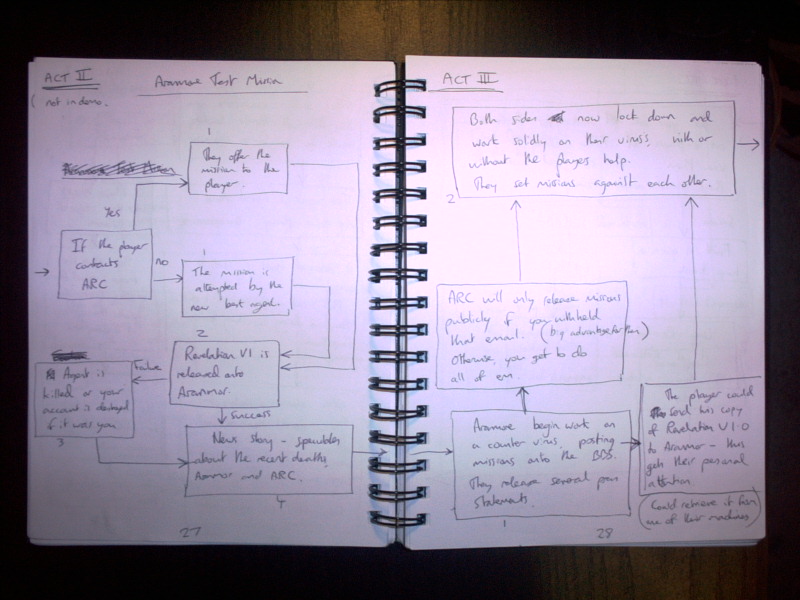 ACT II
Arunmor Test Mission
( not in demo.
1
They offer the
mission to the
player.
Yes
If the player
contacts
ARC
no
1
The mission is
attempted by the
new best agent.
2
Revelation V1 is
released into
Arunmor.
Failure
Agent is
killed or your
account is destroyed
if it was you
3
success
News story - speculates
about the recent deaths,
Arunmor and ARC.
4
27
ACT III
Both sides now lock down and
work solidly on their viruses, with or
without the players help.
They set missions against each other.
2
ARC will only release missions
publicly if you withheld
that email. (big advantage for them)
Otherwise, you get to do
all of em.
Arunmor begin work on
a counter virus, posting
missions onto the BBS.
They release several press
statements.
1
The player could
send his copy
of Revelation V1.0
to Arunmor - thus
gets their personal
attention
(Could retrieve it from
one of their machines)
28